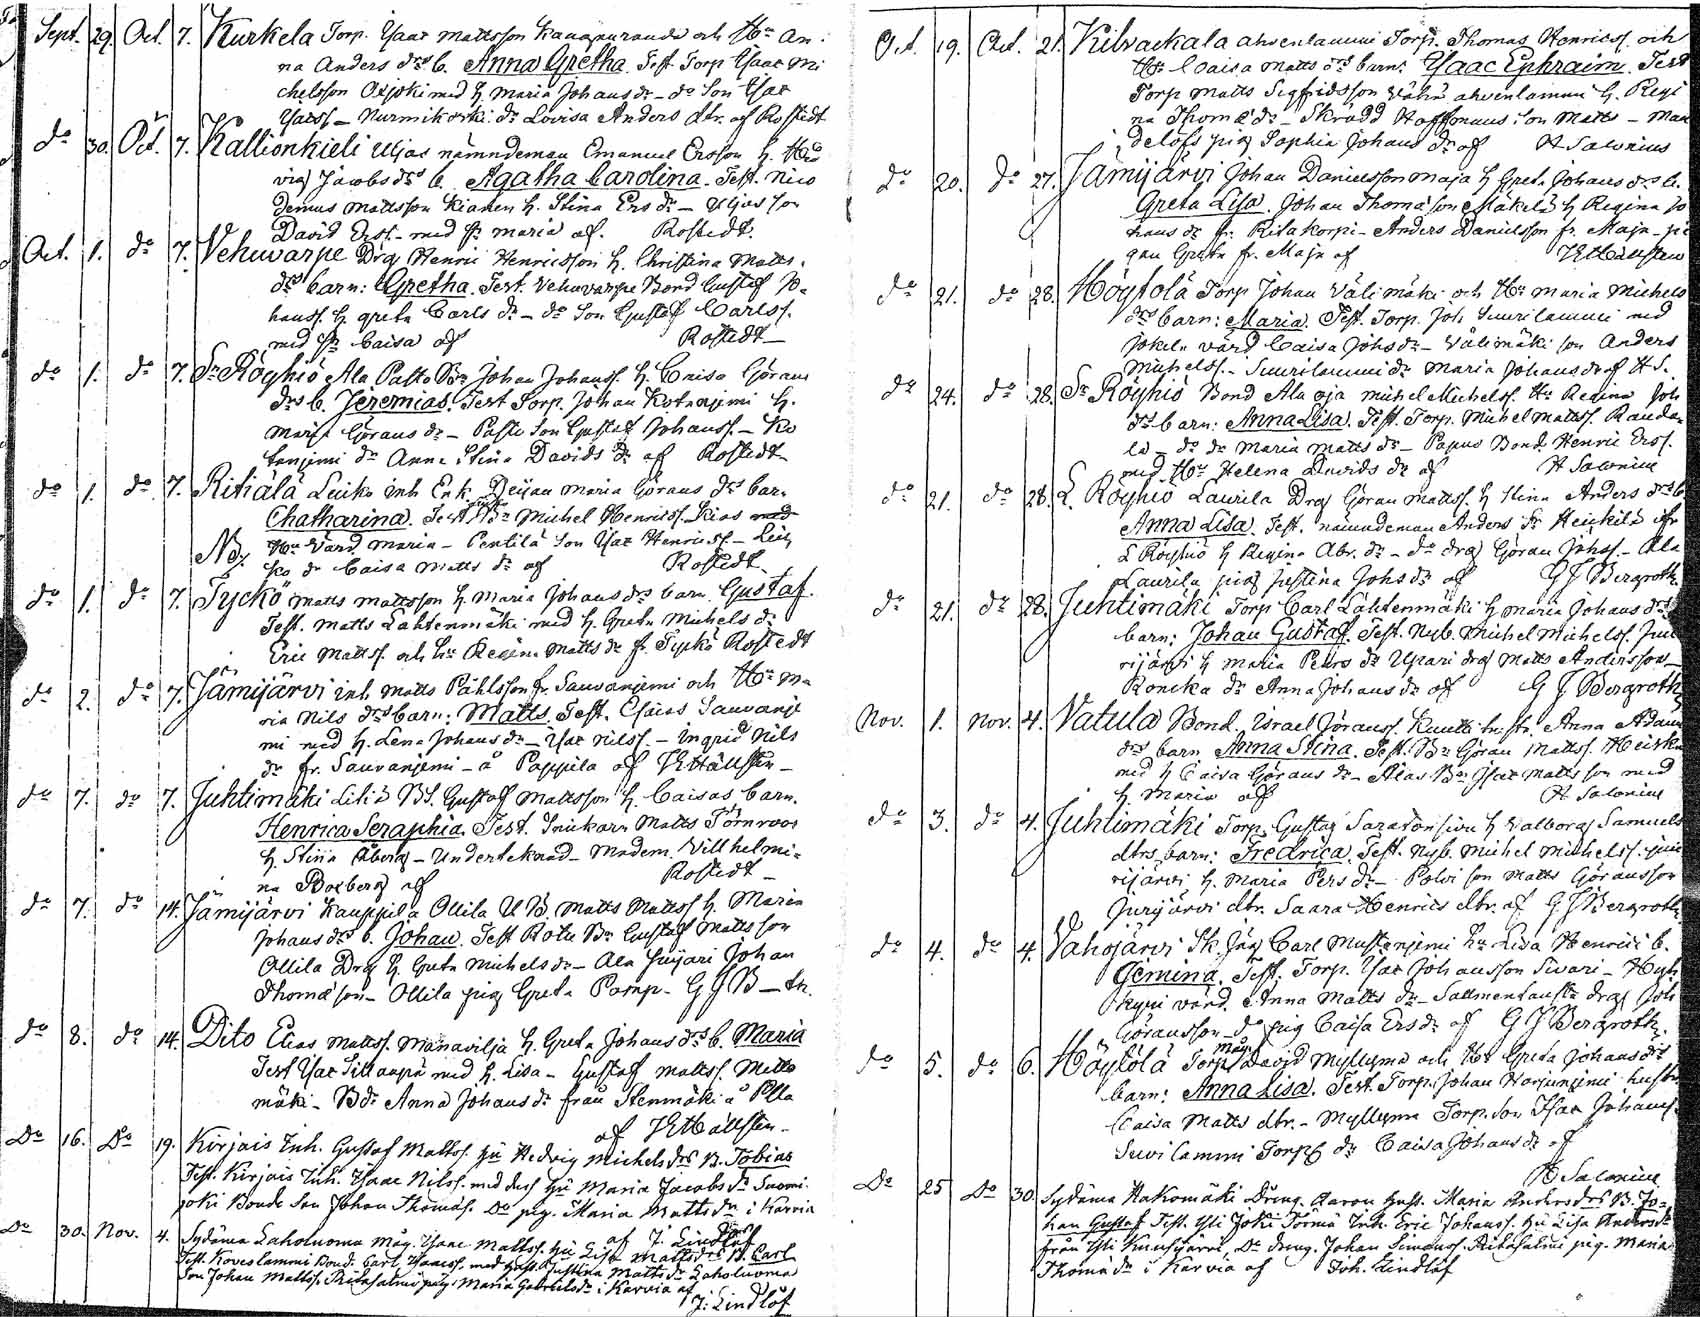 Sept. 29. Oct. 7. Kurkela Torp. Ysaac Mattsson Kangpurande och Hu An-
na Anders drs b. Anna Gretha. Test. Torp Ysaac Mi
chelsson Oxjoki med h. Maria Johans dr – do Son Ysac
Ysacss – Nurmikoski dr Lovisa Anders dtr. af Rostedt
do 30. Oct. 7. Kallionkieli Uljas nämndeman Emanuel Ersson h. Hed
vig Jacobs drs b. Agatha Carolina. Test. Nico
demus Mattsson Kianen h. Stina Ers dr – Uljas Son
David Erss. – med Sr Maria af. Rostedt.
Oct. 1. do 7. Vehuvarpe Drg Henric Henricsson h. Christina Matts.
drs barn: Gretha. Test. Vehuvarpe Bond Gustaf Jo-
hanss. h. Greta Carls dr – do Son Gustaf Carlss.
med Sr Caisa af Rostedt –
do 1. do 7. Sr Röyhiö Ala Pasto Bn Johan Johanss. h. Caisa Görans
drs b. Jeremias. Test Torp. Johan Kotanjemi h.
Maria Görans dr – Pasto Son Gustaf Johanss. – Ko
tanjemi dr Anna Stina Davids dr af Rostedt
do 1. do 7. Ritiälä Leiko inh Enk. Peijan Maria Görans drs bar.
Chatharina. Test Bn Michel Henricss. Kias med
Nb. Hu Värd Maria – Pentilä Son Ysac Henricss – Lei
ko dr Caisa Matts dr af Rostedt.
do 1. do 7. Tyckö Matts Mattsson h. Maria Johans drs barn Gustaf.
Test. Matts Lähtenmäki med h. Greta Michels dr
Eric Mattss. och Hu Regina Matts dr fr. Tyckö Rostedt
do 2. do 7. Jämijärvi inh Matts Påhlsson fr. Sauvanjemi och Hu Ma
ria Nils drs barn: Matts. Test. Esaias Sauvanje
mi med h. Lena Johans dr – Ysac Nilss. – Ingrid Nils
dr fr. Sauvanjemi – å Pappila af Hällsten –
do 7. do 7. Juhtimäki Liliä BS. Gustaf Mattsson h. Caisas barn.
Henrica Seraphia. Test. Snickarn Matts Törnroos
h. Stina Åberg – Undertecknad – Madem. Willhelmi-
na Boxberg af Rostedt –
do 7. do 14. Jämijärvi Kauppila Ollila UB. Matts Mattss h. Maria
Johans drs b. Johan. Test Rotu Bn Gustaf Mattsson
Ollila Drg h. Greta Michels dr – Ala Jurjari Johan
Thomæson – Ollila pig Greta Pomp – G J B – th.
do 8. do 14. Dito Elias Mattss. Mänävilja h. Greta Johans drs b. Maria
Test Ysac Sillanpä med h. Lisa – Gustaf Mattss. Metto
mäki – Bdr Anna Johans dr från Stenmäki å Pllo
af Hällsten.
Do 16. Do 19. Kirjais Inh. Gustaf Mattss. hu Hedvig Michels drs B. Tobias
Test. Kirjais Inh. Ysaac Nilss. med dess hu Maria Jacobs dr Suomi
joki Bonde Son Johan Thomass. Do pig. Maria Matts dr i Karvia
af J. Lindlöf
Do 30. Nov. 4. Sydänm Laholuoma Måg. Ysaac Mattss. hu Lisa Matts drs B. Carl
Test. Koveslammi Bond. Carl Ysaacss. med hust. Justina Matts dr Laholuoma
Son Johan Mattss. Ritasalmi pig. Maria Gabriels dr i Karvia af
J: Lindlöf
Oct. 19. Oct. 21. Kilvackala Ahvenlammi Torp. Thomas Henricss. och
Hu Loaisa Matts drs barn: Ysaac Ephraim. Test
Torp Matts Sigfridsson Vähä Ahvenlammi h. Regi
na Thomæ dr – Skrädd Hoffmans Son Matts – Man
delöfs pig Sophia Johans dr af H Salonius
do 20. do 27. Jämijärvi Johan Danielsson Maja h. Greta Johans drs b.
Greta Lisa. Johan Thomæson Mäkelä h Regina Jo
hans dr fr. Ritakorpi – Anders Danielsson fr. Maja – pi
gan Greta fr. Maja af Hällsten
do 21. do 28. Höytölä Torp Johan Välimäki och Hu Maria Michels
drs barn: Maria. Test. Torp. Joh Suurilammi med
Jokeln värd Caisa Johs dr – Välimäki Son Anders
Michelss. – Suurilammi dr Maria Johans dr af H S.
do 24. do 28. Sr Röyhiö Bond Ala oja Michel Michelss. Hu Regina Joh
drs barn: Anna Lisa. Test. Torp. Michel Mattss. Raudan
la – do dr Maria Matts dr – Papus Bond Henric Erss.
med Hu Helena Davids dr af H Salonius
do 21. do 28. L. Röyhiö Laurila Drg Göran Mattss. h Stina Anders drs b
Anna Lisa. Test. Nämndeman Anders Sr Heickilä ifr
L Röyhiö h Regina Abr. dr – do drg Göran Johss. – Ala
Laurila pig Justina Johs dr af G J Bergroth.
do 21. do 28. Juhtimäki Torp Carl Lähtenmäki h Maria Johans drs
barn: Johan Gustaf. Test. Nyb. Michel Michelss. Juu
rijärvi h Maria Pehrs dr Upari drg Matts Andersson –
Roncka dr Anna Johans dr af G J Bergroth
Nov. 1. Nov. 4. Vatula Bond. Israel Jöranss. Knutti hustr. Anna Adam
drs barn Anna Stina. Test. Bn Göran Mattss. Heisk
med h Caisa Görans dr – Alas Bn Ysac Mattsson med
h. Maria af H Salonius
do 3. do 4. Juhtimäki Torp. Gustaf Saxatonsivu h Valborg Samuels
dtrs barn: Fredrica. Test. Nyb. Michel Michelss. Juu
rijärvi h. Maria Pers dr – Polvi Son Matts Göransson
Jurijärvi dtr. Saara Henrics dtr. af G J Bergroth
do 4. do 4. Vahojärvi Sk. Jäg Carl Mustanjemi Hu Lisa Henrici b.
Gemina. Test. Torp. Ysac Johansson Sivari – Hyh
kyri värd. Anna Matts dr – Sallmentausta drg Joh
Göransson – do pig Caisa Ers dr af G J Bergroth.
do 5. do 6. Höytölä Torp måg David Myllymä och Hu Greta Johans drs
barn: Anna Lisa. Test. Torp. Johan Harjunjemi hustr
Caisa Matts dtr. – Myllymä Torp. Son Ysac Johanss.
Suvilammi Torps dr Caisa Johans dr af
H Salonius
Do 25 Do 30. Sydänm Hakomäki Dräng. Aaron hust. Maria Anders drs B. Jo-
han Gustaf Test. Yli Joki Törmä Inh. Eric Johanss. hu Lisa Anders dr
från Yli Kuusijärvi, Do dräng. Johan Simonss. Ritasalmi pig. Maria
Thomæ dr i Karvia af Joh. Lindlöf